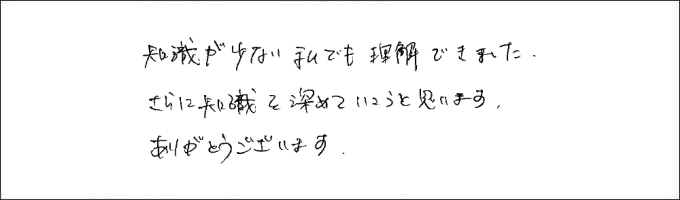 知識が少ない私でも理解できました.
さらに知識を深めていこうと思います.
ありがとうございます.